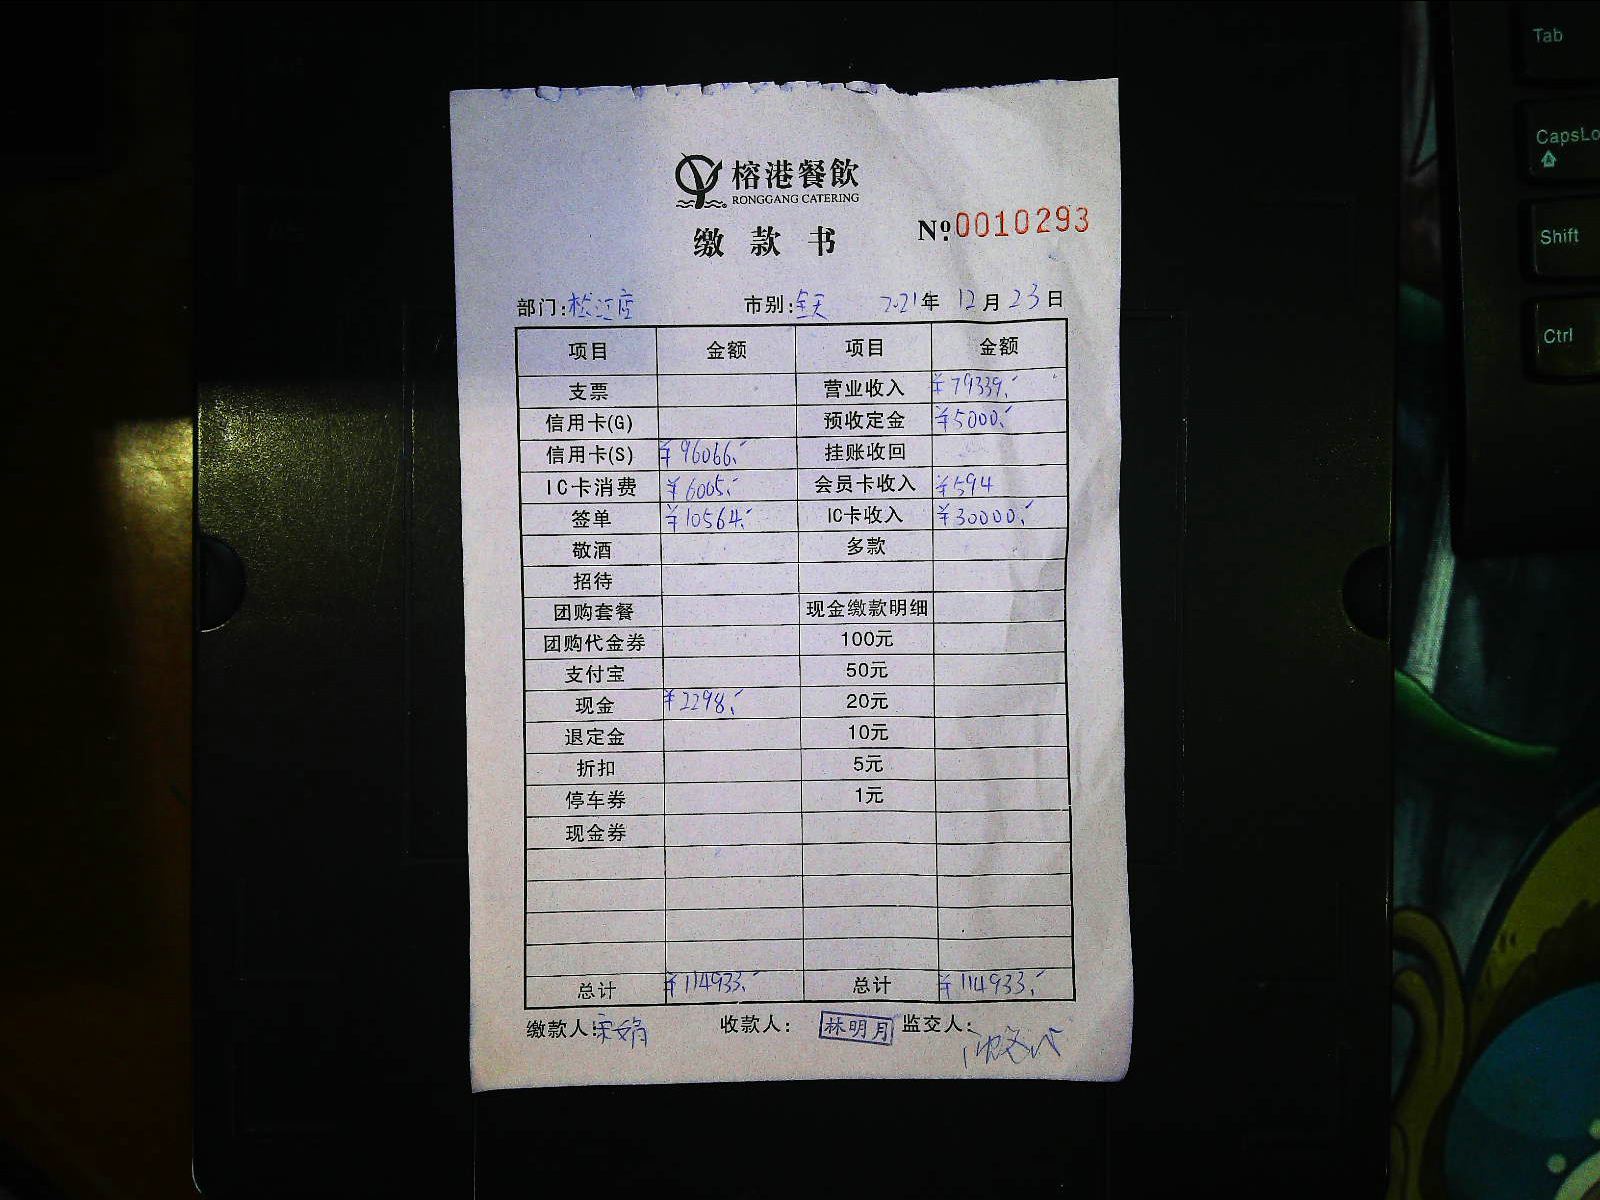 榕港餐飲
RONGGANG CATERING
缴款书
Nº:0010293
部门:松江店 市别:全天 2021年 12月 23日
项目 金额 项目 金额
支票 营业收入 ¥79339.-
信用卡(G) 预收定金 ¥5000.-
信用卡(S) ¥96066.- 挂账收回
IC卡消费 ¥6005.- 会员卡收入 ¥594
签单 ¥10564.- IC卡收入 ¥30000.-
敬酒 多款
招待
团购套餐 现金缴款明细
团购代金券 100元
支付宝 50元
现金 ¥2298.- 20元
退定金 10元
折扣 5元
停车券 1元
现金券
总计 ¥114933.- 总计 ¥114933.-
缴款人:宋娟 收款人: 林明月 监交人:
Tab
CapsLo
Shift
Ctrl